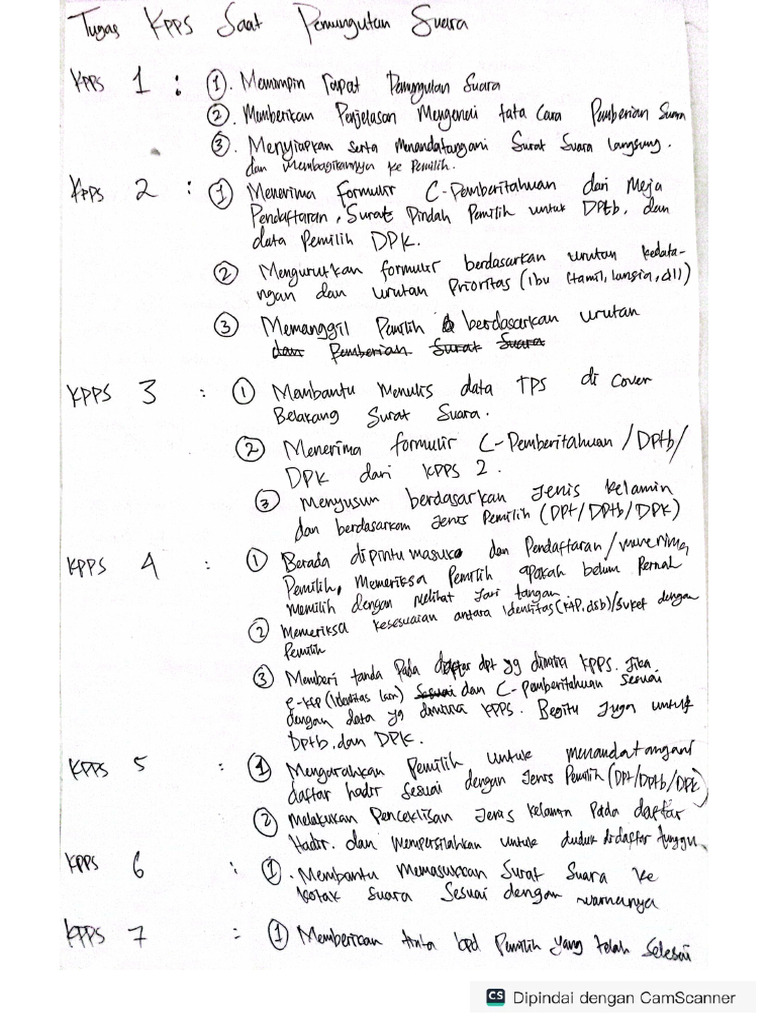 Tugas KPPS Saat Pemungutan Suara
KPPS 1 : ①. Memimpin Rapat Pemungutan Suara
②. Memberikan Penjelasan Mengenai tata Cara Pemberian Suara
③. Menyiapkan serta Menandatangani Surat Suara langsung.
dan Membagikannya ke Pemilih.
KPPS 2 : ① Menerima formulir C-Pemberitahuan dari Meja
Pendaftaran, Surat Pindah Pemilih untuk DPtb, dan
data Pemilih DPK.
② Mengurutkan formulir berdasarkan urutan kedata-
ngan dan urutan Prioritas (ibu Hamil, lansia, dll)
③ Memanggil Pemilih berdasarkan urutan
dan Pemberian Surat Suara
KPPS 3 : ① Membantu Menulis data TPS di Cover
Belakang Surat Suara.
② Menerima formulir C-Pemberitahuan/DPtb/
DPK dari KPPS 2.
③ Menyusun berdasarkan Jenis kelamin
dan berdasarkan Jenis Pemilih (DPt/DPtb/DPK)
KPPS 4 : ① Berada dipintu masuk dan Pendaftaran/menerima
Pemilih, Memeriksa Pemilih apakah belum Pernah
memilih dengan Melihat Jari tangan
② Memeriksa kesesuaian antara Identitas (KtP, dsb)/Suket dengan
Pemilih
③ Memberi tanda Pada daftar dpt yg dimiliki KPPS. Jika
e-ktp (Identitas lain) Sesuai dan C-Pemberitahuan Sesuai
dengan data yg dimiliki KPPS. Begitu Juga untuk
DPtb, dan DPK.
KPPS 5 : ① Mengarahkan Pemilih untuk menandatangani
daftar hadir Sesuai dengan Jenis Pemilih (DPt/DPtb/DPK)
② Melakukan Penceklisan Jenis Kelamin Pada daftar
Hadir. dan mempersilahkan untuk duduk didaftar tunggu.
KPPS 6 : ①. Membantu Memasukkan Surat Suara ke
kotak Suara Sesuai dengan warnanya
KPPS 7 : ① Memberikan tinta kpd Pemilih yang telah Selesai
CS Dipindai dengan CamScanner